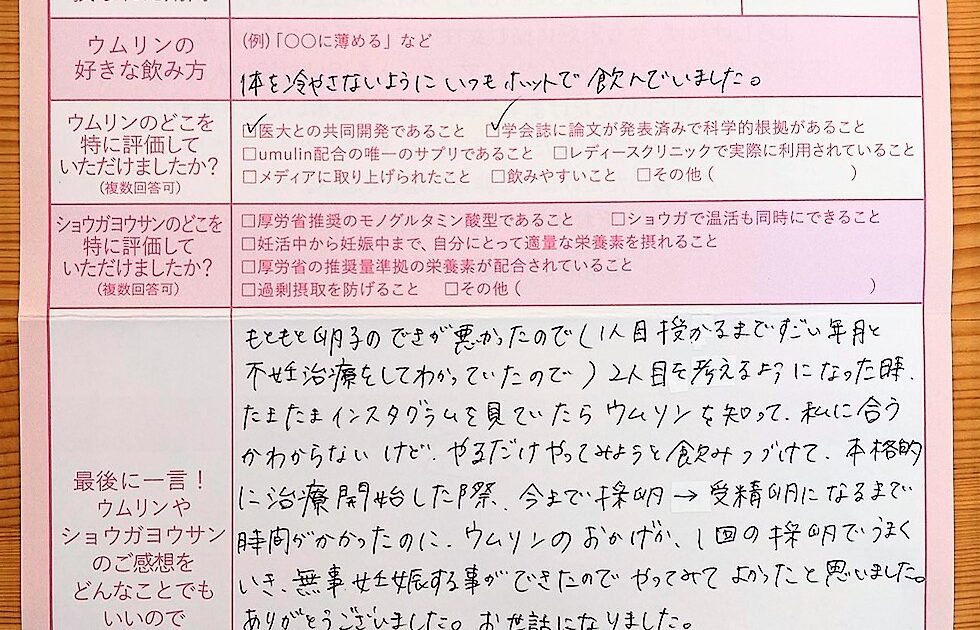 ウムリンの
好きな飲み方
(例)「〇〇に薄める」など
体を冷やさないようにいつもホットで飲んでいました。
ウムリンのどこを
特に評価して
いただけましたか?
(複数回答可)
☑医大との共同開発であること ☑学会誌に論文が発表済みで科学的根拠があること
□umulin配合の唯一のサプリであること □レディースクリニックで実際に利用されていること
□メディアに取り上げられたこと □飲みやすいこと □その他 ( )
ショウガヨウサンのどこを
特に評価して
いただけましたか?
(複数回答可)
□厚労省推奨のモノグルタミン酸型であること □ショウガで温活も同時にできること
□妊活中から妊娠中まで、自分にとって適量な栄養素を摂れること
□厚労省の推奨量準拠の栄養素が配合されていること
□過剰摂取を防げること □その他 ( )
最後に一言!
ウムリンや
ショウガヨウサン
のご感想を
どんなことでも
いいので
もともと卵子のできが悪かったので(1人目授かるまですごい年月と
不妊治療をしてわかっていたので)2人目を考えるようになった時、
たまたまインスタグラムを見ていたらウムリンを知って、私に合う
かわからないけど、やるだけやってみようと飲みつづけて、本格的
に治療開始した際、今まで採卵→受精卵になるまで
時間がかかったのに、ウムリンのおかげか、1回の採卵でうまく
いき、無事妊娠する事ができたのでやってみてよかったと思いました。
ありがとうございました。お世話になりました。